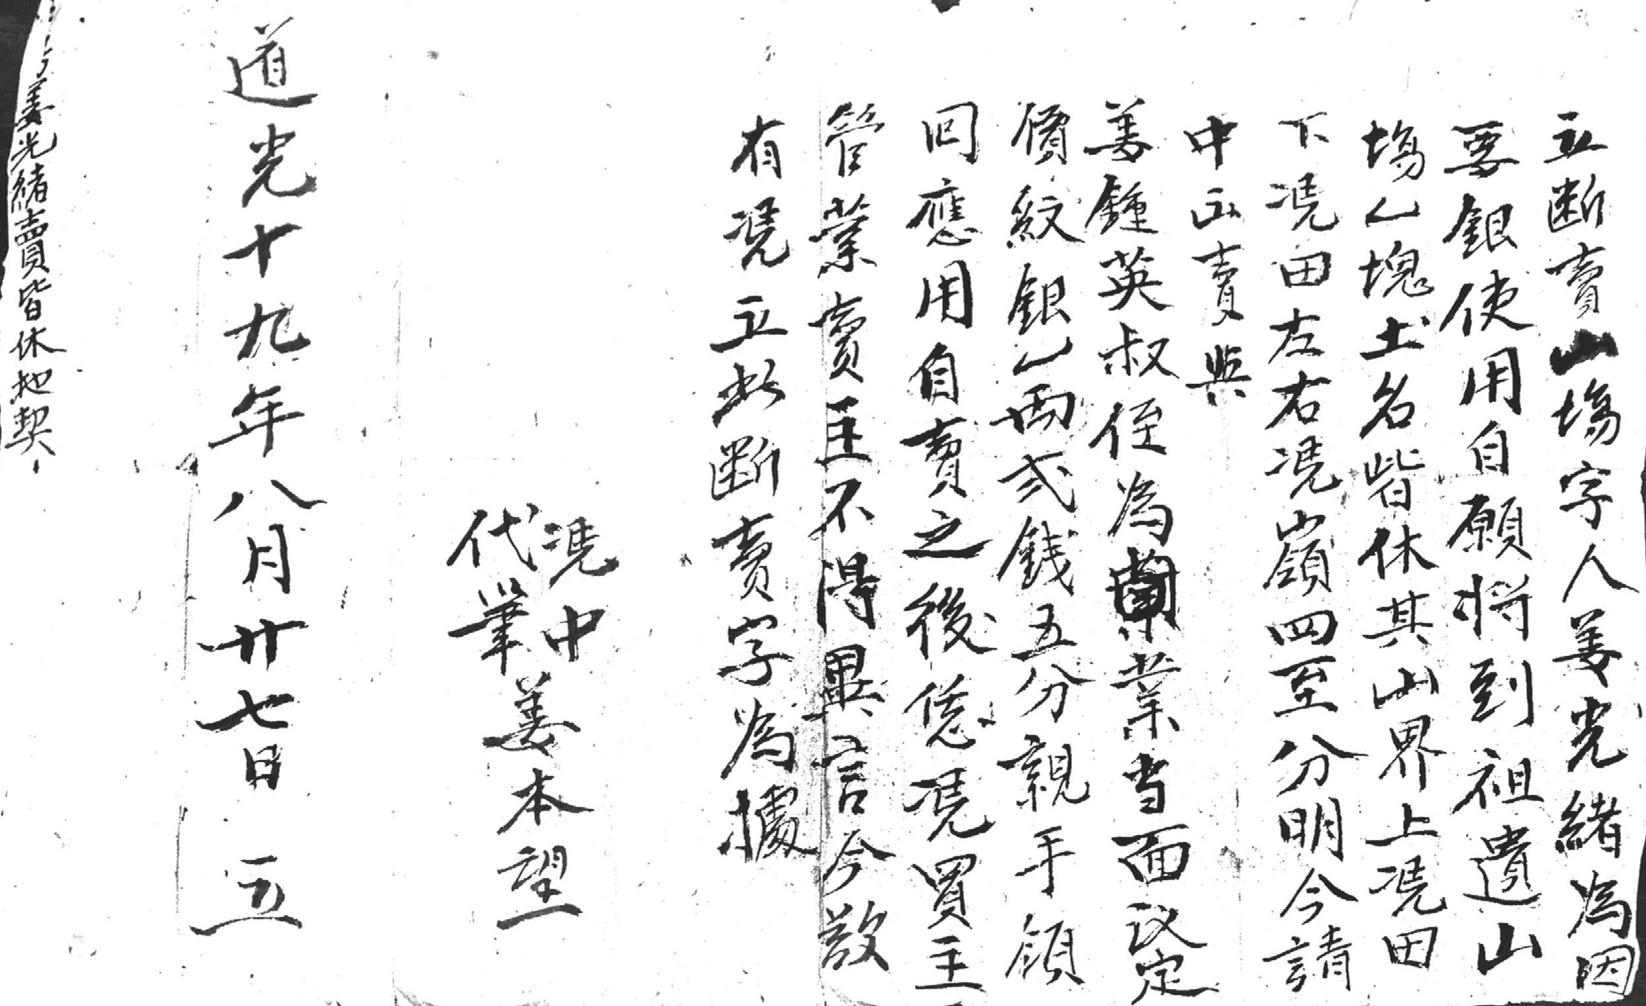 立断賣山塲字人姜光緒為因
要銀使用自願将到祖遺山
塲乙塊土名皆休其山界上凴田
下凴田左右凴嶺四至分明今請
中出賣與
姜鍾英叔侄為業当面议定
價紋銀乙両弍銭五分親手領
回應用自賣之後凴買主
管業賣主不得異言今欲
有凴立此断賣字為據
凴中
代筆
姜本望
道光十九年八月廿七日 立
姜光緒賣皆休地契